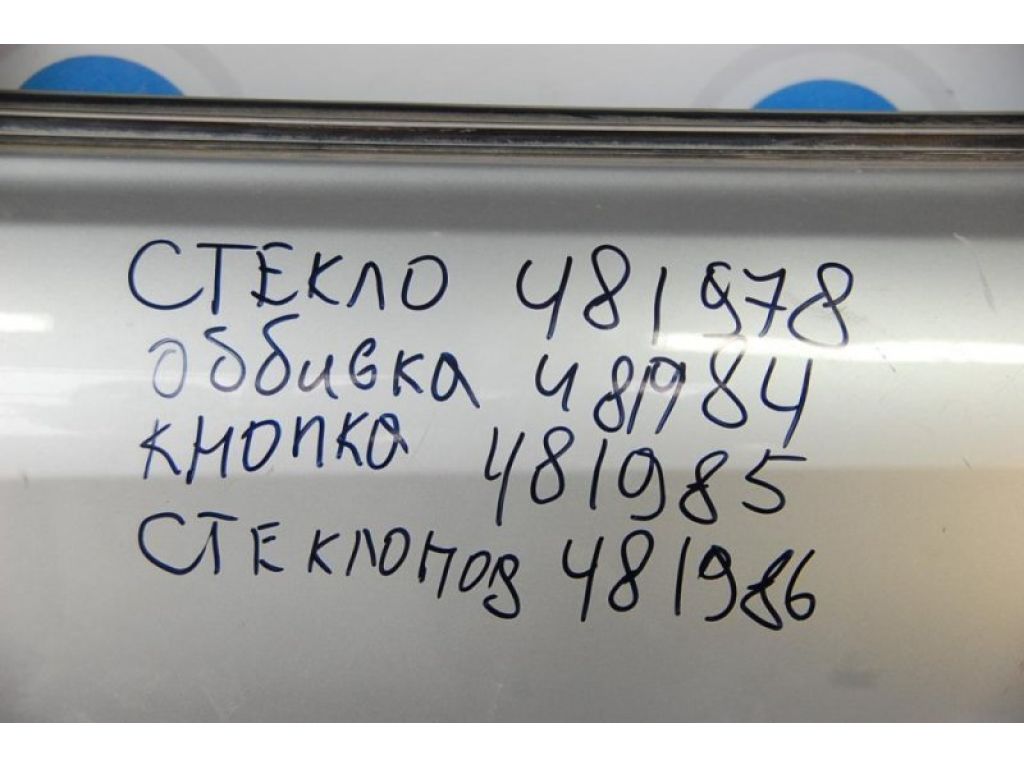 СТЕКЛО 481978
оббивка 481984
кнопка 481985
СТЕКЛОПОД 481986